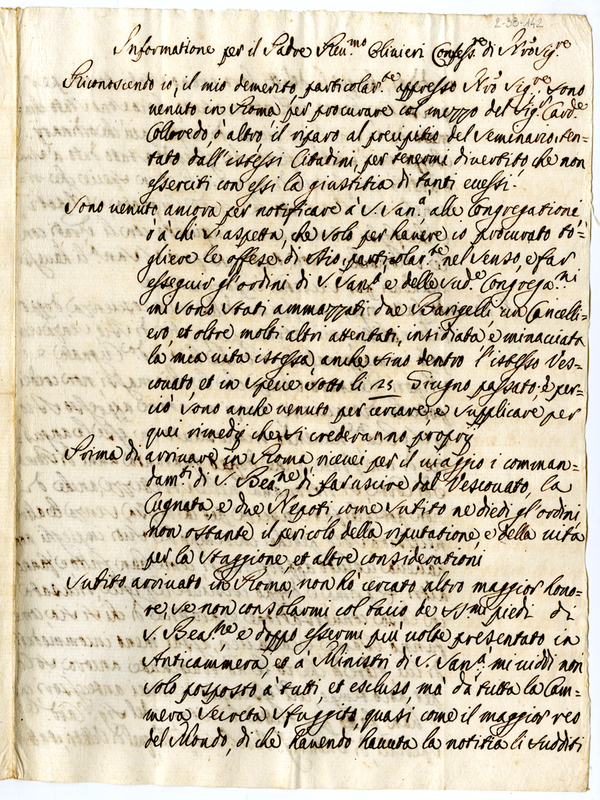 2-38-142
Informatione per il Padre Reu.mo Oliuieri Confess.re di N̄ro Sig.re
Riconoscendo io, il mio demerito particolar.te appresso N̄ro Sig.re, sono
uenuto in Roma per procurare col mezzo del Sig.r Card.e
Collouedo ò altro, il riparo al precipitio del Seminario, ten=
tato dall'istessi Cittadini, per tenermi diuertito, che non
esserciti con essi la giustitia di tanti ecessi.
Sono uenuto ancora per notificare à S. San.a alle Congregationi
ò à chi s'aspetta, che solo per hauere io procurato to=
gliere le offese di Dio, particolar.te nel senso, e far
esseguir gl'ordini di S. San.a e delle Sud.e Congrega.ni
mi sono stati ammazzati due Barigelli, un Cancelli=
ero, et oltre molti altri attentati, insidiata, e minacciata
la mia uita istessa, anche sino dentro l'istesso Ves=
couato, et in specie sotto li 25 Giugno passato; è per=
ciò sono anche uenuto per cercare, e supplicare per
quei rimedij che si crederanno proprij
Prima di arriuare in Roma riceuei per il uiaggio i comman=
dam.ti di S. Bea.ne di far uscire dal Vescouato, la
Cugnata e due Nepoti, come subito ne diedi gl'ordini
non ostante il pericolo della riputatione e della uita
per la staggione, et altre considerationi
Subito arriuato in Roma, non hò cercato altro maggior hono=
re, se non consolarmi col bacio de SS.mi piedi di
S. Bea.ne, e doppo essermi più uolte presentato in
Anticammera, et à Ministri di S. San.a, mi uiddi non
solo posposto à tutti, et escluso mà dà tutta la Cam=
mera Secreta sfuggito, quasi come il maggior reo
del Mondo, di che hauendo hauuta la notitia li sudditi